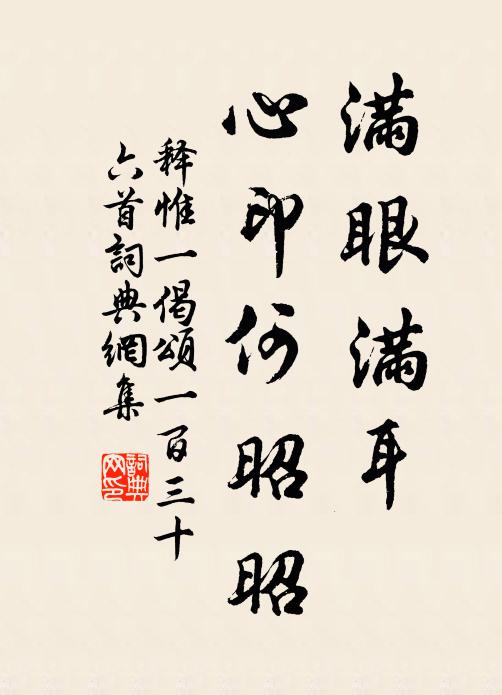 满眼满耳
心印何昭昭
释惟一偈颂一百三十
六首詞典網集
詞典
网印